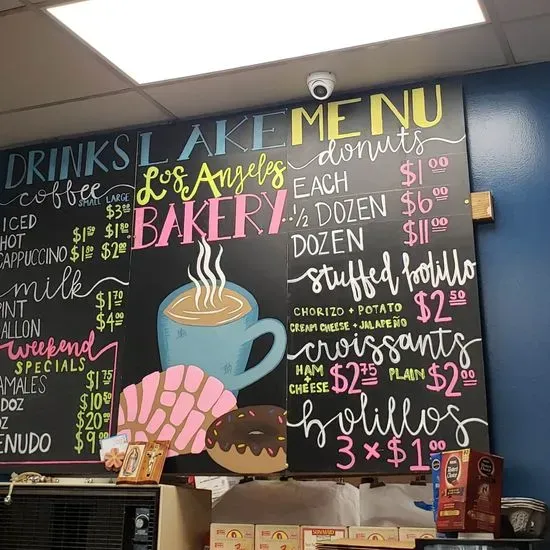 DRINKS
coffee
SMALL LARGE
ICED $3.00
HOT $1.50 $1.80
CAPPUCCINO $1.80 $2.00
milk
PINT $1.70
ALLON $4.00
weekend
SPECIALS
AMALES $1.75
DOZ $10.50
OZ $20.00
ENUDO
LAKE
Los Angeles
BAKERY
MENU
donuts
EACH $1.00
1/2 DOZEN $6.00
DOZEN $11.00
stuffed bolillo
CHORIZO + POTATO
CREAM CHEESE + JALAPEÑO
$2.50
croissants
HAM & CHEESE $2.75 PLAIN $2.00
bolillos
3 x $1.00
SUN-MAID